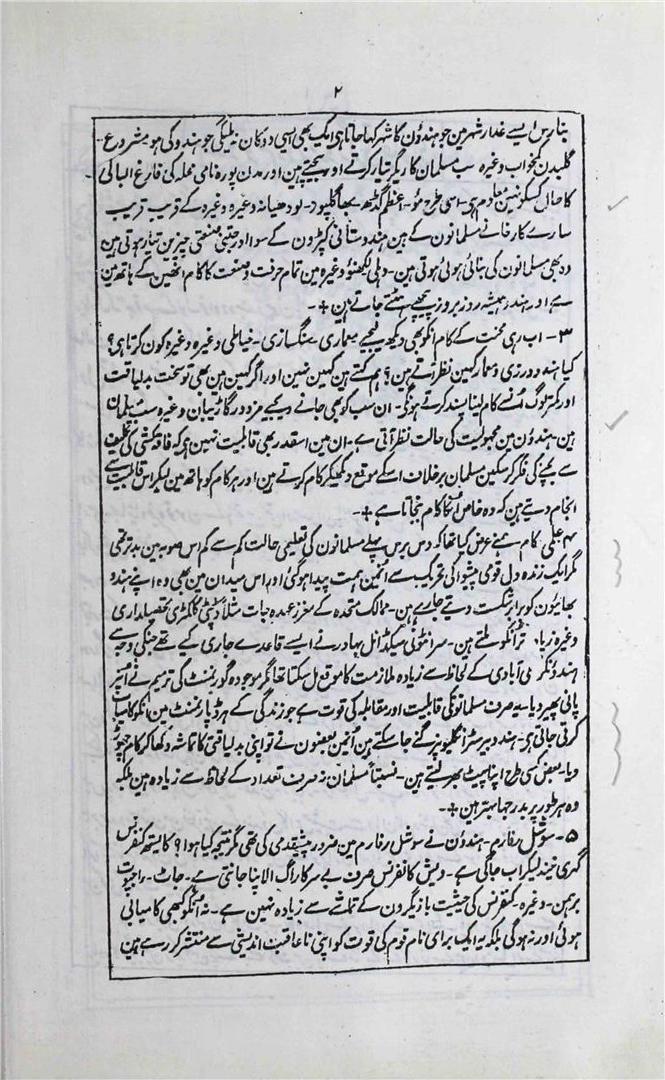 ۲
بنارس ایسے غدار شہر مین جو ہندؤن کا شہر کہا جاتا ہی ایک بھی ایسی دوکان نہ ملیگی جو ہندو کی ہو مشروع۔
گلبدن کمخواب وغیرہ سب مسلمان کاریگر تیار کرتے اور بیچتے ہین اور مدن پورہ نامی محلہ کی فارغ البالی
کا حال کسکو نہین معلوم ہی۔ اسی طرح مؤ۔ اعظم گڈھ۔ بھاگلپور۔ لودھیانہ وغیرہ وغیرہ کے قریب قریب
سارے کارخانے مسلمانون کے ہین ہندوستانی کپڑون کے سوا اور جتنی صنعتی چیزین تیار ہوتی ہین
وہ بھی مسلمانون کی بنائی ہوئی ہوتی ہین۔ دہلی لکھنؤ وغیرہ مین تمام حرفت وصنعت کا کام انھین کے ہاتھ مین
ہے اور ہندو ہمیشہ روز بروز پیچھے ہٹتے جاتے ہین +۔
۳۔ اب رہی محنت کے کام انکو بھی دیکھ لیجیے معماری سنگسازی۔ خیاطی وغیرہ وغیرہ کون کرتا ہی؟
کیا ہندو درزی و معمار کہین نظر آتے ہین؟ ہم کہتے ہین کہین نہین اور اگر کہین ہین بھی تو سخت بد لیاقت
اور کمتر لوگ اُنسے کام لینا پسند کرتے ہونگے۔ ان سب کو بھی جانے دیجیے مزدور گاڑیبان وغیرہ سب مسلمان
ہین۔ ہندؤن مین مجہولیت کی حالت نظر آتی ہے۔ ان مین اسقدر بھی قابلیت نہین ہی کہ فاقہ کشی کی تکلیف
سے بچنے کی فکر کرسکین مسلمان برخلاف اسکے موقع دیکھکر کام کرتے ہین اور ہر کام کو ہاتھ مین لیکر اس قابلیت سے
انجام دیتے ہین کہ وہ خاص اُنکا کام بنجاتا ہے +۔
۴۔ علمی کام۔ مینے عرض کیا تھا کہ دس برس پہلے مسلمانون کی تعلیمی حالت کم سے کم اس صوبہ مین بدتر تھی
مگر ایک زندہ دل قومی پیشوا کی تحریک سے اُنمین ہمت پیدا ہوگئی اور اس میدان مین بھی وہ اپنے ہندو
بھائیون کو برابر شکست دیتے جا رہے ہین۔ ممالک متحدہ کے معزز عہدہ جات مثلاً ڈپٹی کلکٹری تحصیلداری
وغیرہ زیادہ تر انکو ملتے ہین۔ سر انٹونی میکڈانل بہادر نے ایسے قاعدے جاری کیے تھے جنکی وجہ سے
ہندؤنکو آبادی کے لحاظ سے زیادہ ملازمت کا موقع مل سکتا تھا مگر موجودہ گورنمنٹ کی ترمیم نے اُنپر
پانی پھیر دیا۔ یہ صرف مسلمانونکی قابلیت اور مقابلہ کی قوت ہے جو زندگی کے ہر ڈپارٹمنٹ مین انکو کامیاب
کرتی جاتی ہی۔ ہندو بیرسٹر انگلیونپر گنے جا سکتے ہین اُنمین بعضون نے تو اپنی بد لیاقتی کا تماشہ دکھا کر کام چھوڑ
دیا۔ بعض کسی طرح اپنا پیٹ بھر لیتے ہین۔ نسبتاً مسلمان نہ صرف تعداد کے لحاظ سے زیادہ ہین بلکہ
وہ ہر طور پر بدرجہا بہتر ہین +۔
۵۔ سوشل رفارم۔ ہندؤن نے سوشل رفارم مین ضرور پیشقدمی کی تھی مگر نتیجہ کیا ہوا؟ کایستھ کنفرنس
گہری نیند لیکر اب جاگی ہے۔ ویش کانفرنس صرف بے سر کا راگ الاپنا جانتی ہے۔ جاٹ۔ راجپوت
برہمن۔ وغیرہ۔ کنفرنس کی حیثیت بازیگرون کے تماشے سے زیادہ نہین ہے۔ نہ انکو کبھی کامیابی
ہوئی اور نہ ہوگی بلکہ یہ ایک برای نام قوم کی قوت کو اپنی ناعاقبت اندیشی سے منتشر کر رہے ہین